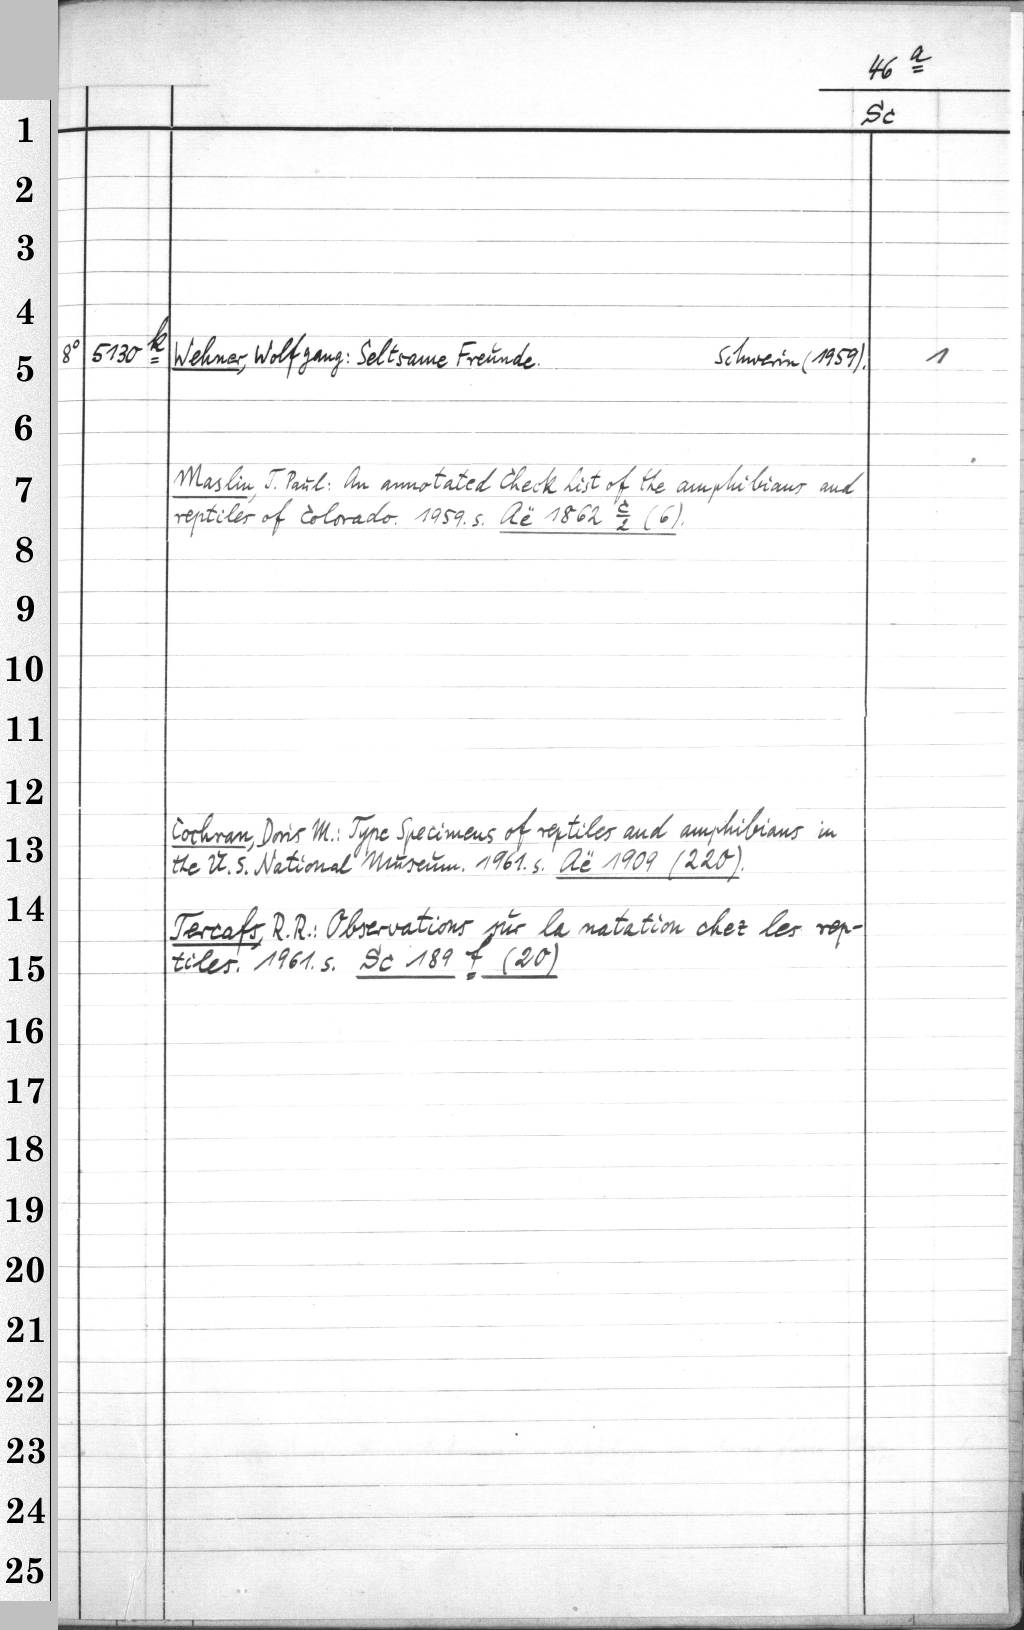 46 a
Sc
1
2
3
4
8° 5130 k Wehner, Wolfgang: Seltsame Freunde. Schwerin (1959). 1
5
6
7
Maslin, T. Paul: An annotated Check List of the amphibians and
reptiles of Colorado. 1959. s. Aë 1862 c/2 (6).
8
9
10
11
12
Cochran, Doris M.: Type Specimens of reptiles and amphibians in
13
the U. S. National Museum. 1961. s. Aë 1909 (220).
14
Tercafs, R. R.: Observations sur la natation chez les rep-
tiles. 1961. s. Sc 189 f (20)
15
16
17
18
19
20
21
22
23
24
25